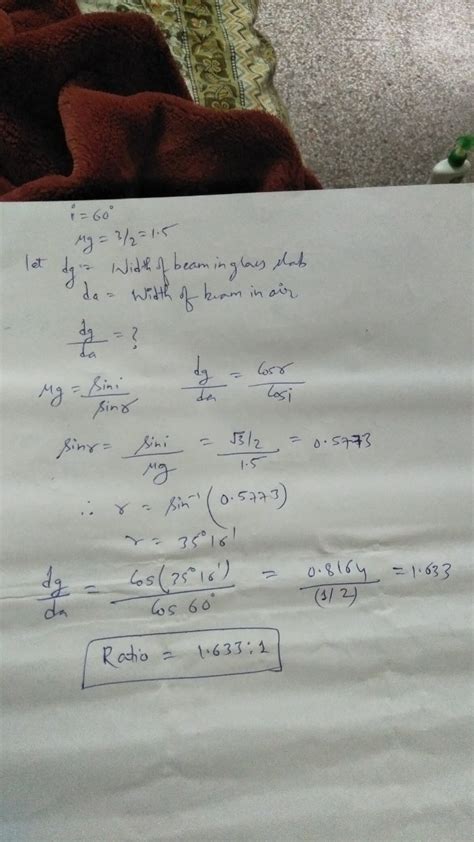 i = 60°
μg = 3/2 = 1.5
let dg = Width of beam in glass slab
da = Width of beam in air
dg/da = ?
μg = sin i/sin r   dg/da = cos r/cos i
sin r = sin i/μg = √3/2/1.5 = 0.5773
∴ r = sin⁻¹(0.5773)
r = 35°16'
dg/da = cos(35°16')/cos 60° = 0.8164/(1/2) = 1.633
Ratio = 1.633:1